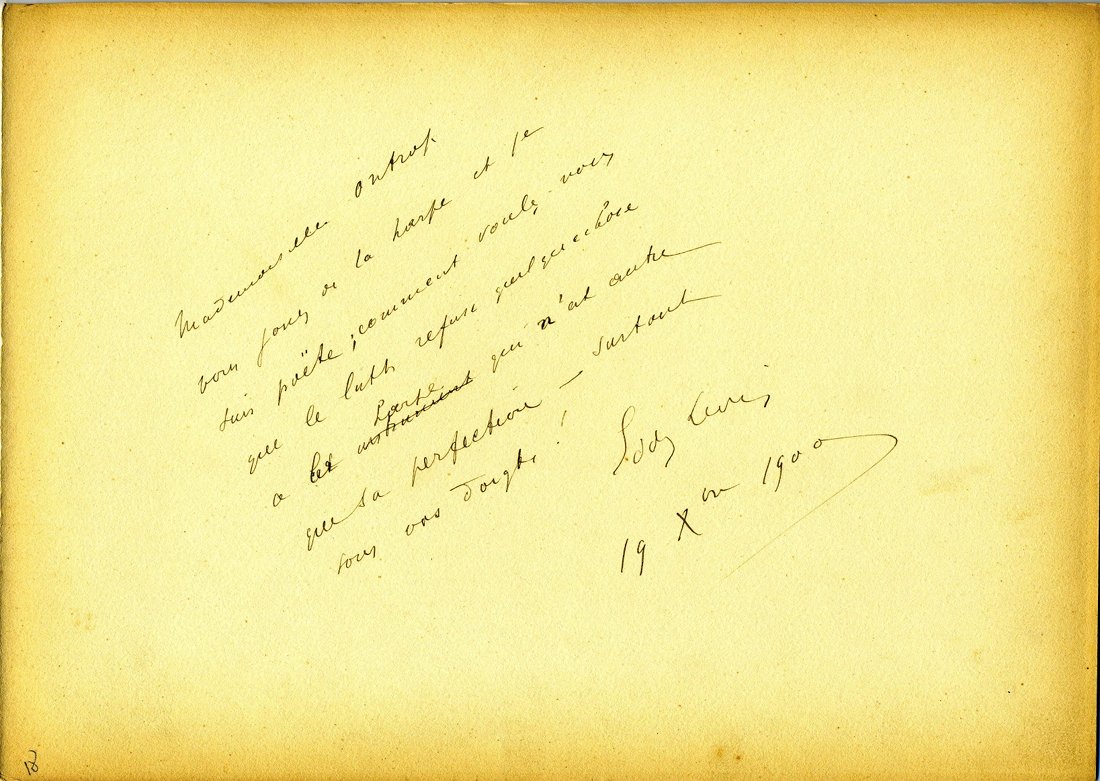 Mademoiselle
vous jouez de la harpe et je
suis poëte ; comment voulez vous
que le luth refuse quelque chose
a la harpe qui n'est autre
que sa perfection — surtout
sous vos doigts !
Eddy Levis
19 Xbre 1900
18